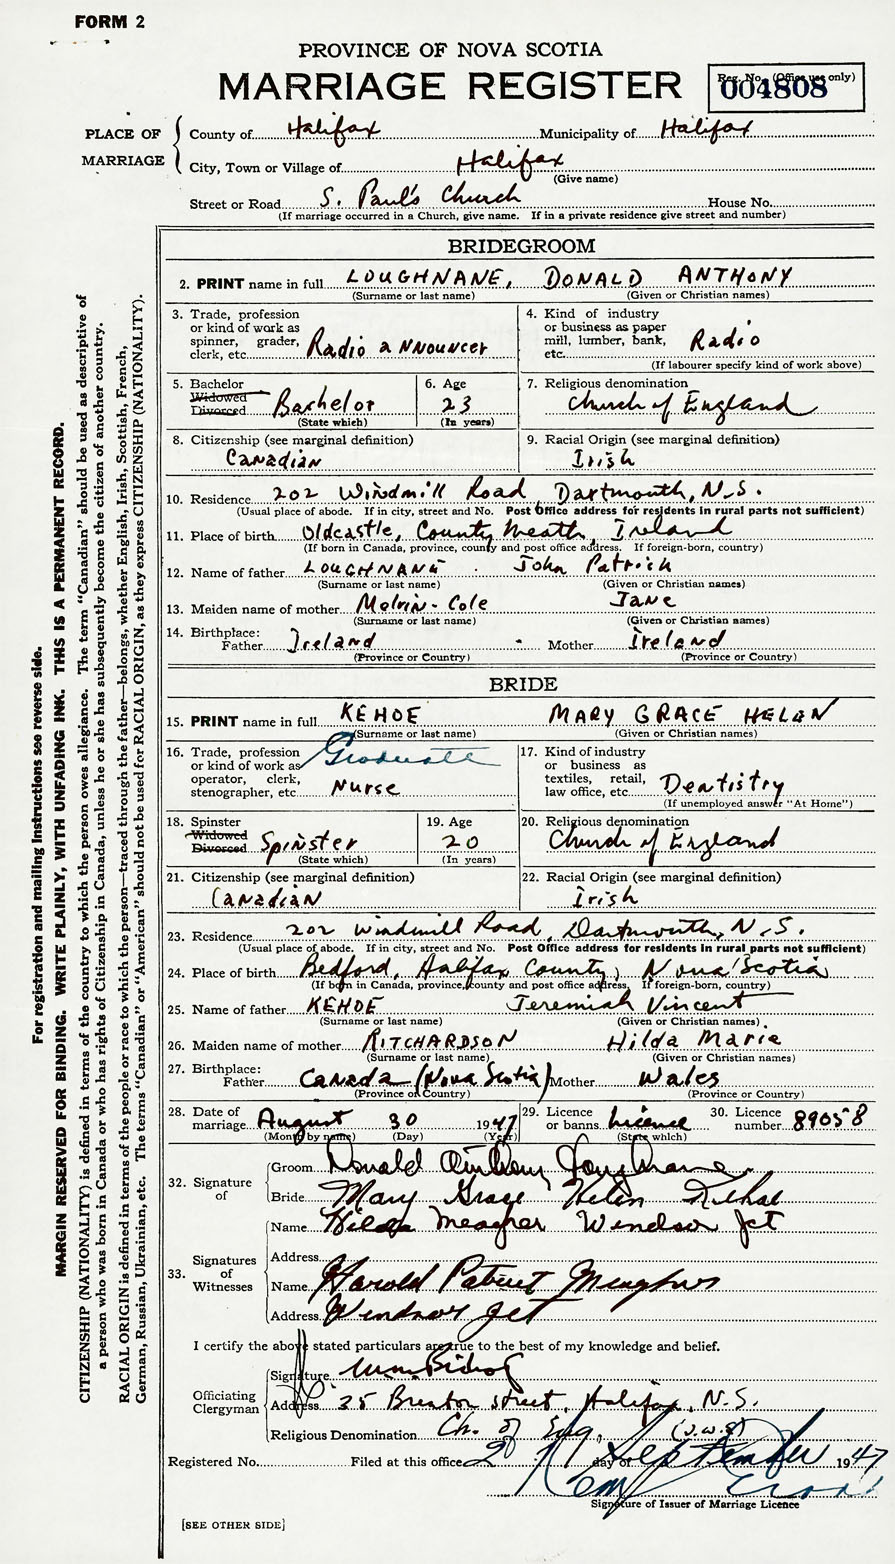 FORM 2
PROVINCE OF NOVA SCOTIA
MARRIAGE REGISTER
Reg. No. (Office use only)
004808
PLACE OF MARRIAGE
County of Halifax Municipality of Halifax
City, Town or Village of Halifax
(Give name)
Street or Road S. Paul's Church House No.
(If marriage occurred in a Church, give name. If in a private residence give street and number)
BRIDEGROOM
2. PRINT name in full LOUGHNANE, DONALD ANTHONY
(Surname or last name) (Given or Christian names)
3. Trade, profession
or kind of work as
spinner, grader,
clerk, etc. Radio announcer
4. Kind of industry
or business as paper
mill, lumber, bank,
etc. Radio
(If labourer specify kind of work above)
5. Bachelor
Widowed
Divorced Bachelor
(State which)
6. Age
23
(In years)
7. Religious denomination
Church of England
8. Citizenship (see marginal definition)
Canadian
9. Racial Origin (see marginal definition)
Irish
10. Residence 202 Windmill Road, Dartmouth, N.S.
(Usual place of abode. If in city, street and No. Post Office address for residents in rural parts not sufficient)
11. Place of birth Oldcastle, County Meath, Ireland
(If born in Canada, province, county and post office address. If foreign-born, country)
12. Name of father LOUGHNANE John Patrick
(Surname or last name) (Given or Christian names)
13. Maiden name of mother Melvin-Cole Jane
(Surname or last name) (Given or Christian names)
14. Birthplace:
Father Ireland Mother Ireland
(Province or Country) (Province or Country)
BRIDE
15. PRINT name in full KEHOE MARY GRACE HELEN
(Surname or last name) (Given or Christian names)
16. Trade, profession
or kind of work as
operator, clerk,
stenographer, etc. Graduate Nurse
17. Kind of industry
or business as
textiles, retail,
law office, etc. Dentistry
(If unemployed answer "At Home")
18. Spinster
Widowed
Divorced Spinster
(State which)
19. Age
20
(In years)
20. Religious denomination
Church of England
21. Citizenship (see marginal definition)
Canadian
22. Racial Origin (see marginal definition)
Irish
23. Residence 202 Windmill Road, Dartmouth, N.S.
(Usual place of abode. If in city, street and No. Post Office address for residents in rural parts not sufficient)
24. Place of birth Bedford, Halifax County, Nova Scotia
(If born in Canada, province, county and post office address. If foreign-born, country)
25. Name of father KEHOE Jeremiah Vincent
(Surname or last name) (Given or Christian names)
26. Maiden name of mother RITCHARDSON Hilda Marie
(Surname or last name) (Given or Christian names)
27. Birthplace:
Father Canada (Nova Scotia) Mother Wales
(Province or Country) (Province or Country)
28. Date of
marriage August 30 1947
(Month by name) (Day) (Year)
29. Licence
or banns Licence
(State which)
30. Licence
number 89058
32. Signature
of
Groom Donald Anthony Loughnane
Bride Mary Grace Helen Kehoe
33. Signatures
of
Witnesses
Name Hilda Meagher Windsor Jct
Address
Name Harold Meagher
Address Windsor Jct
I certify the above stated particulars are true to the best of my knowledge and belief.
Officiating
Clergyman
Signature Wm. Bishop
Address 25 Brenton Street, Halifax, N.S.
Religious Denomination Ch. of Eng.
Registered No. Filed at this office 2 day of September 1947
Signature of Issuer of Marriage Licence
[SEE OTHER SIDE]
For registration and mailing instructions see reverse side.
MARGIN RESERVED FOR BINDING. WRITE PLAINLY, WITH UNFADING INK. THIS IS A PERMANENT RECORD.
CITIZENSHIP (NATIONALITY) is defined in terms of the country to which the person owes allegiance. The term "Canadian" should be used as descriptive of
a person who was born in Canada or who has rights of Citizenship in Canada, unless he or she has subsequently become the citizen of another country.
RACIAL ORIGIN is defined in terms of the people or race to which the person—traced through the father—belongs, whether English, Irish, Scottish, French,
German, Russian, Ukrainian, etc. The terms "Canadian" or "American" should not be used for RACIAL ORIGIN, as they express CITIZENSHIP (NATIONALITY).